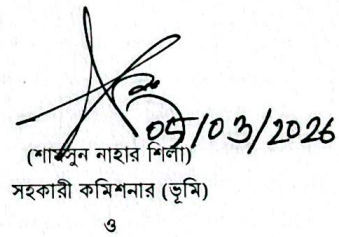 05/03/2026
(শামসুন নাহার শিলা)
সহকারী কমিশনার (ভূমি)
ও